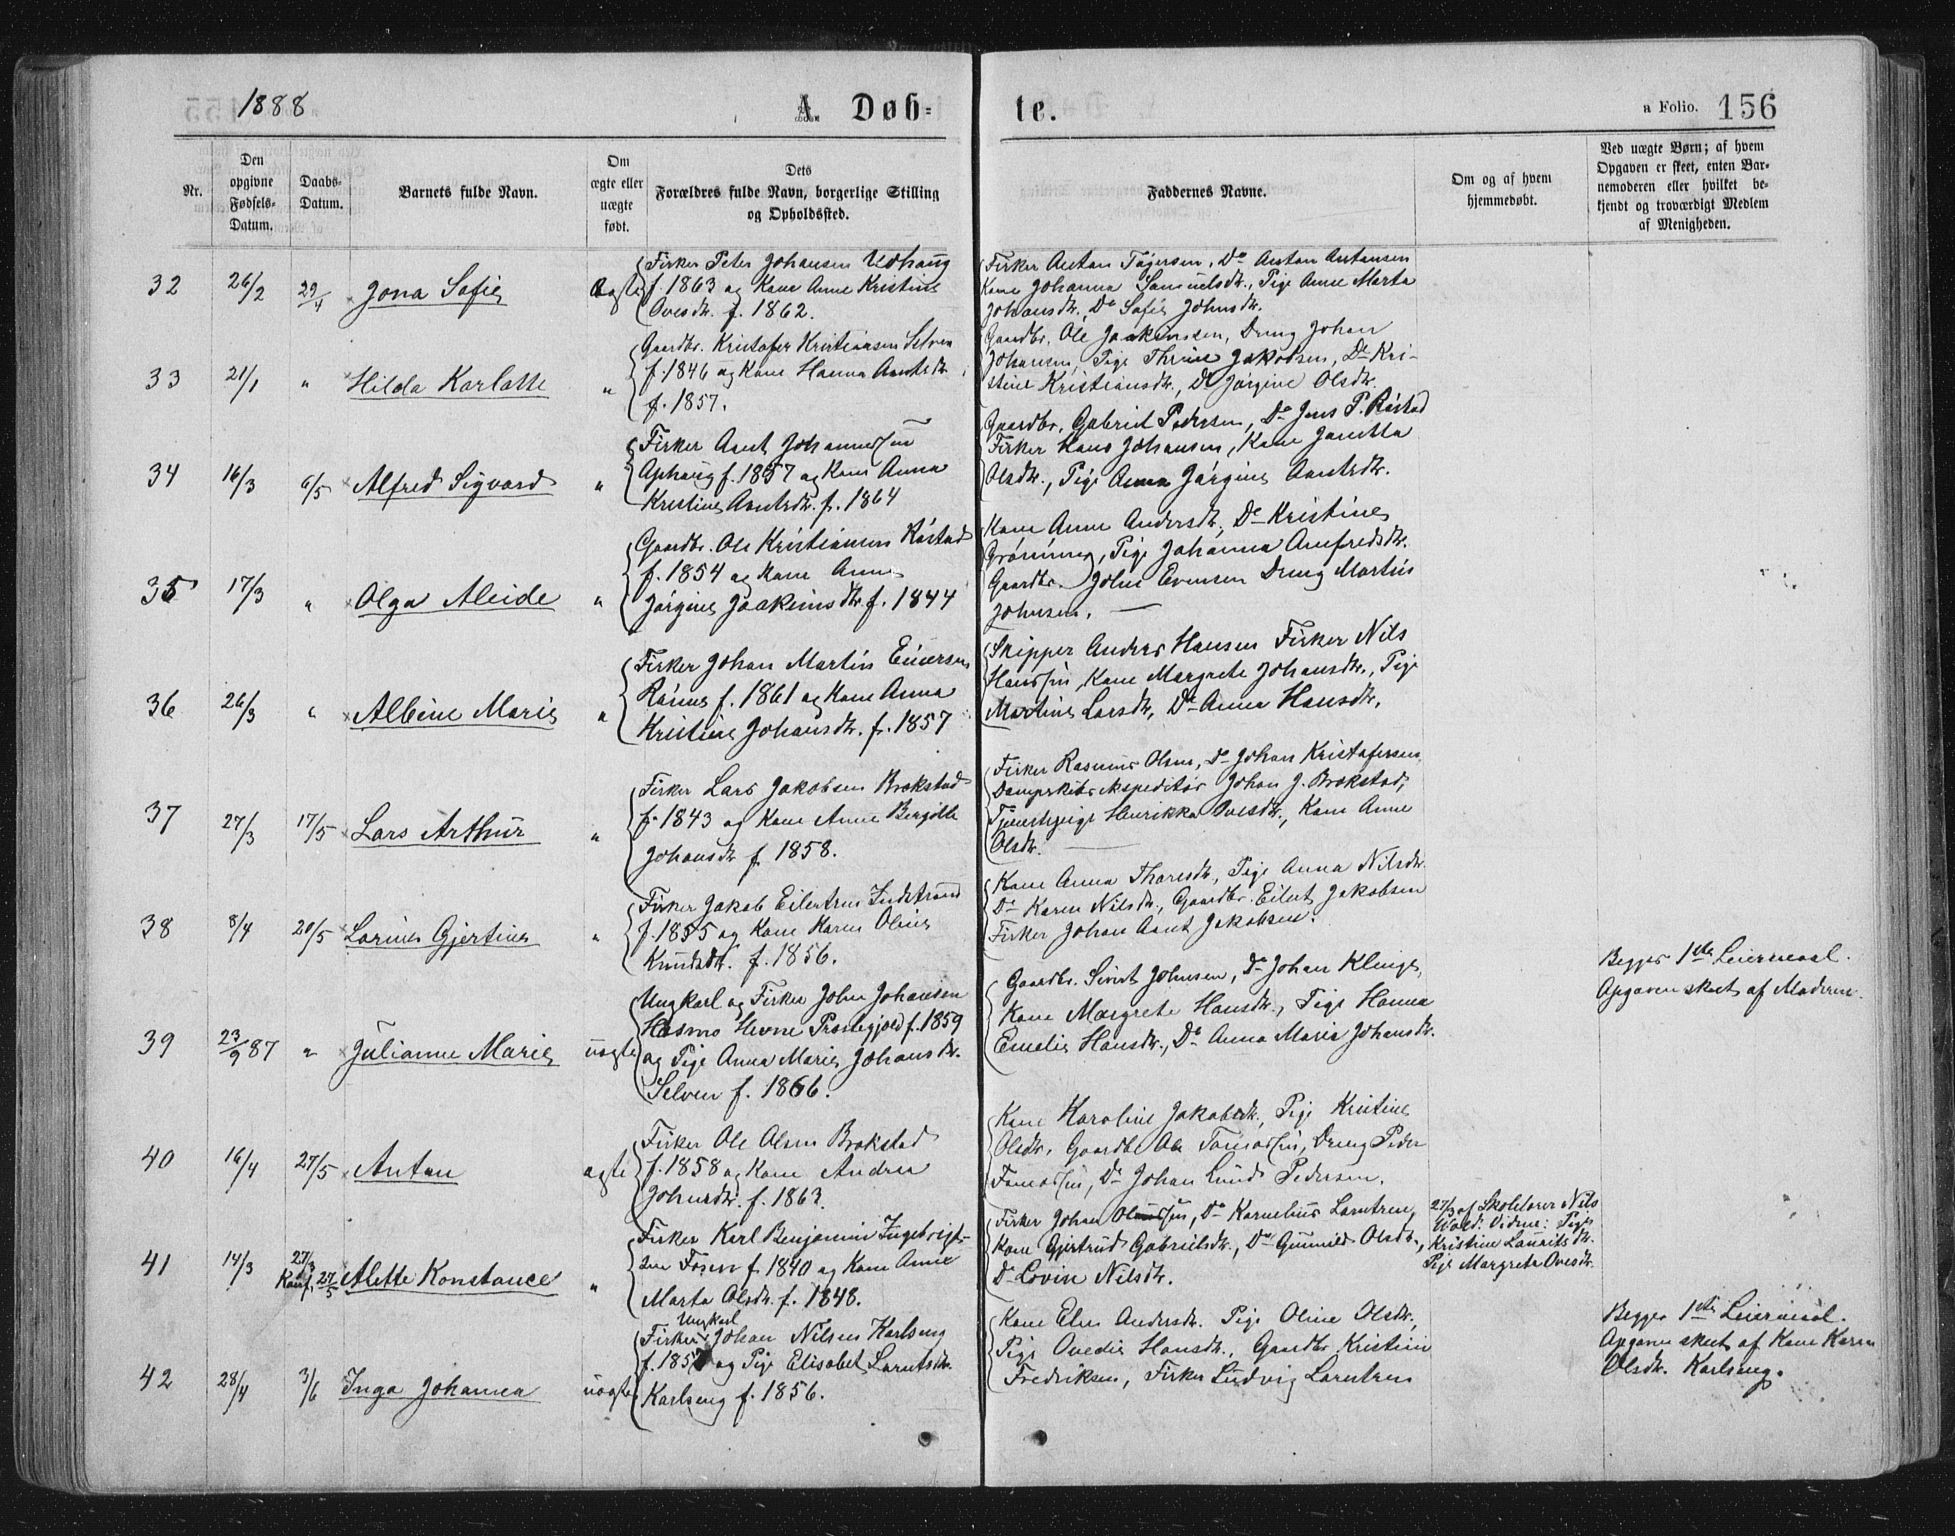 1888
A. Døb=
te.
a Folio. 156
Nr.
Den opgivne Fødsels-Datum.
Daabs-Datum.
Barnets fulde Navn.
Om ægte eller uægte født.
Dets Forældres fulde Navn, borgerlige Stilling og Opholdssted.
Faddernes Navne.
Om og af hvem hjemmedøbt.
Ved uægte Børn; af hvem Opgaven er skeet, enten Barnemoderen eller hvilket bekjendt og troværdigt Medlem af Menigheden.
32 26/2 29/4 Jona Sofie Ægte
Fisker Peter Johansen Vedhaug
f. 1863 og Kone Anne Kristine
Ovesdtr. f. 1862.
Fisker Anton Tøgersen, Do Anton Antonsen
Kone Johanna Samuelsdtr., Pige Anne Marta
Johansdtr., Do Sofie Johnsdtr.
33 21/1 " Hilda Karlotte "
Gaardbr. Kristofer Kristiansen Selven
f. 1846 og Kone Hanna Arntsdtr.
f. 1857.
Gaardbr. Ole Joakimsen, Dreng Johan
Johansen, Pige Thrine Jakobsen, Do Kri-
stine Kristiansdtr., Do Jørgine Olsdtr.
34 16/3 6/5 Alfred Sigvard "
Fisker Arnt Johannessen
Aphaug f. 1857 og Kone Anna
Kristine Arntsdtr. f. 1864
Gaardbr. Gabriel Pedersen, Do Jens P. Røstad
Fisker Hans Johansen, Kone Janetta
Olsdtr., Pige Anna Jørgine Arntsdtr.
35 17/3 " Olga Aleide "
Gaardbr. Ole Kristiansen Røstad
f. 1854 og Kone Anne
Jørgine Joakimsdtr. f. 1844
Kone Anne Andersdtr., Do Kristine
Grønning, Pige Johanna Amfredsdtr.
Gaardbr. John Evensen Dreng Martin
Johnsen. —
36 26/3 " Albine Marie "
Fisker Johan Martin Einersen
Rønne f. 1861 og Kone Anna
Kristine Johansdtr. f. 1857
Skipper Anders Hansen Fisker Nils
Hanssen, Kone Margrete Johansdtr., Pige
Martine Larsdtr., Do Anna Hansdtr.
37 27/3 17/5 Lars Arthur "
Fisker Lars Jakobsen Brekstad
f. 1843 og Kone Anne Bergitte
Johansdtr f. 1858.
Fisker Rasmus Olsen, Do Johan Kristofersen
Dampskibsekspeditør Johan J. Brekstad,
Tjenestepige Henrikka Ovesdtr., Kone Anne
Olsdtr. —
38 8/4 20/5 Lorine Gjertine "
Fisker Jakob Eilertsen Indstrand
f. 1855 og Kone Karen Oline
Knudsdtr. f. 1856.
Kone Anna Thoresdtr., Pige Anna Nilsdtr.
Do Karen Nilsdtr., Gaardbr. Eilert Jakobsen
Fisker Johan Arnt Jakobsen.
39 23/9 87 " Julianne Marie uægte
Ungkarl og Fisker John Johansen
Hasmo Hevne Præstegjeld f. 1859
og Pige Anna Marie Johansdtr.
Selven f. 1866.
Gaardbr. Sivert Johnsen, Do Johan Klinge,
Kone Margrete Hansdtr., Pige Hanna
Emelie Hansdtr., Do Anna Maria Johansdtr.
Begges 1ste Leiermaal.
Opgaven skeet af Moderen.
40 16/4 27/5 Anton ægte
Fisker Ole Olsen Brekstad
f. 1858 og Kone Andrea
Johnsdtr. f. 1863.
Kone Karoline Jakobsdtr., Pige Kristine
Olsdtr. Gaardbr Ole Tomassen, Dreng Peder
Tomassen, Do Johan Lund Pedersen.
41 14/3 27/3 Konf. 27/5 Alette Konstance "
Fisker Karl Benjamin Ingebrigt-
sen Fosen f. 1840 og Kone Anne
Marta Olsdtr. f. 1848.
Fisker Johan Olsen, Do Kornelius Larntsen,
Kone Gjertrud Gabrielsdtr., Do Gunnild Olsdtr.,
Do Lovise Nilsdtr.
27/3 af Skolelærer Nils
Wold. Vidne: Pige
Kristine Lauritsdtr.
Pige Margreta Ovesdtr.
42 28/4 3/6 Inga Johanna uægte
Ungkarl
Fisker Johan Nilsen Karlseng
f. 1857 og Pige Elisabet Larntsdtr.
Karlseng f. 1856.
Kone Elen Andersdtr. Pige Oline Olsdtr.,
Pige Ovedie Hansdtr., Gaardbr Kristian
Fredriksen, Fisker Ludvig Larntsen
Begges 1ste Leiermaal.
Opgaven skeet af Kone Karen
Olsdtr. Karlseng.